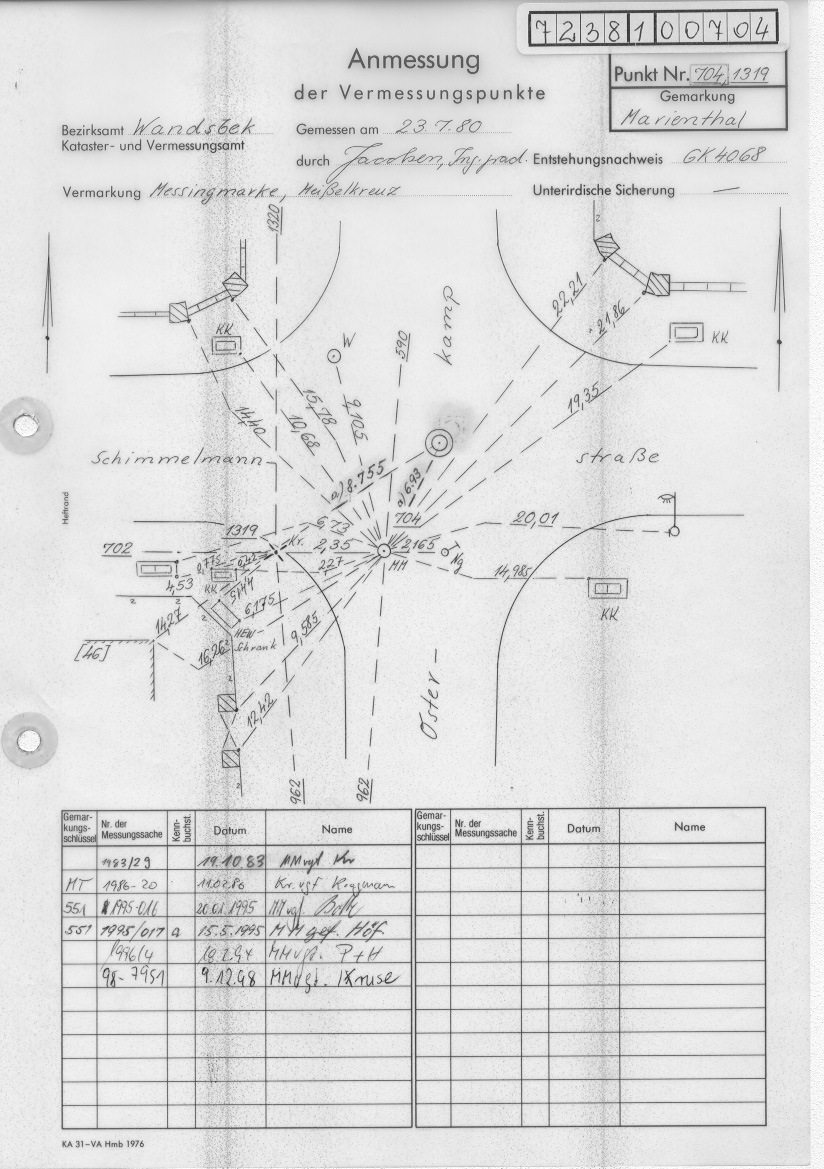 7 2 3 8 1 0 0 7 0 4
Anmessung
der Vermessungspunkte
Punkt Nr. 704, 1319
Gemarkung
Marienthal
Bezirksamt Wandsbek
Kataster- und Vermessungsamt
Gemessen am 23.7.80
durch Jacobsen, Ing. grad.
Entstehungsnachweis GK 4068
Vermarkung Messingmarke, Meißelkreuz
Unterirdische Sicherung —
1320
2
KK
W
590
kamp
22,21
21,86
KK
14,40
10,68
15,78
9,105
19,35
Schimmelmann
straße
a) 8.755
a) 6.93
Heftrand
1319
6,73
704
20,01
702
Kr.
2,35
2,165
Ng
MM
2,775
0,42
227
14,985
4,53
KK
5,44
KK
2
2
6,175
14,27
HEW-
Schrank
9,585
[46]
16,26
2
2
12,42
Oster-
2
962
962
Gemar-
kungs-
schlüssel
Nr. der
Messungssache
Kenn-
buchst.
Datum
Name
Gemar-
kungs-
schlüssel
Nr. der
Messungssache
Kenn-
buchst.
Datum
Name
1483/29 19.10.83 MM vgf. Kr
MT 1986-20 11.02.86 Kr. vgf.
551 1995-016 20.01.1995 MM vgf.
551 1995/017 a 15.5.1995 MM gef. Höf
1996/4 MM vgf. P+H
98-7951 9.12.98 MM vgf. Kruse
KA 31–VA Hmb 1976